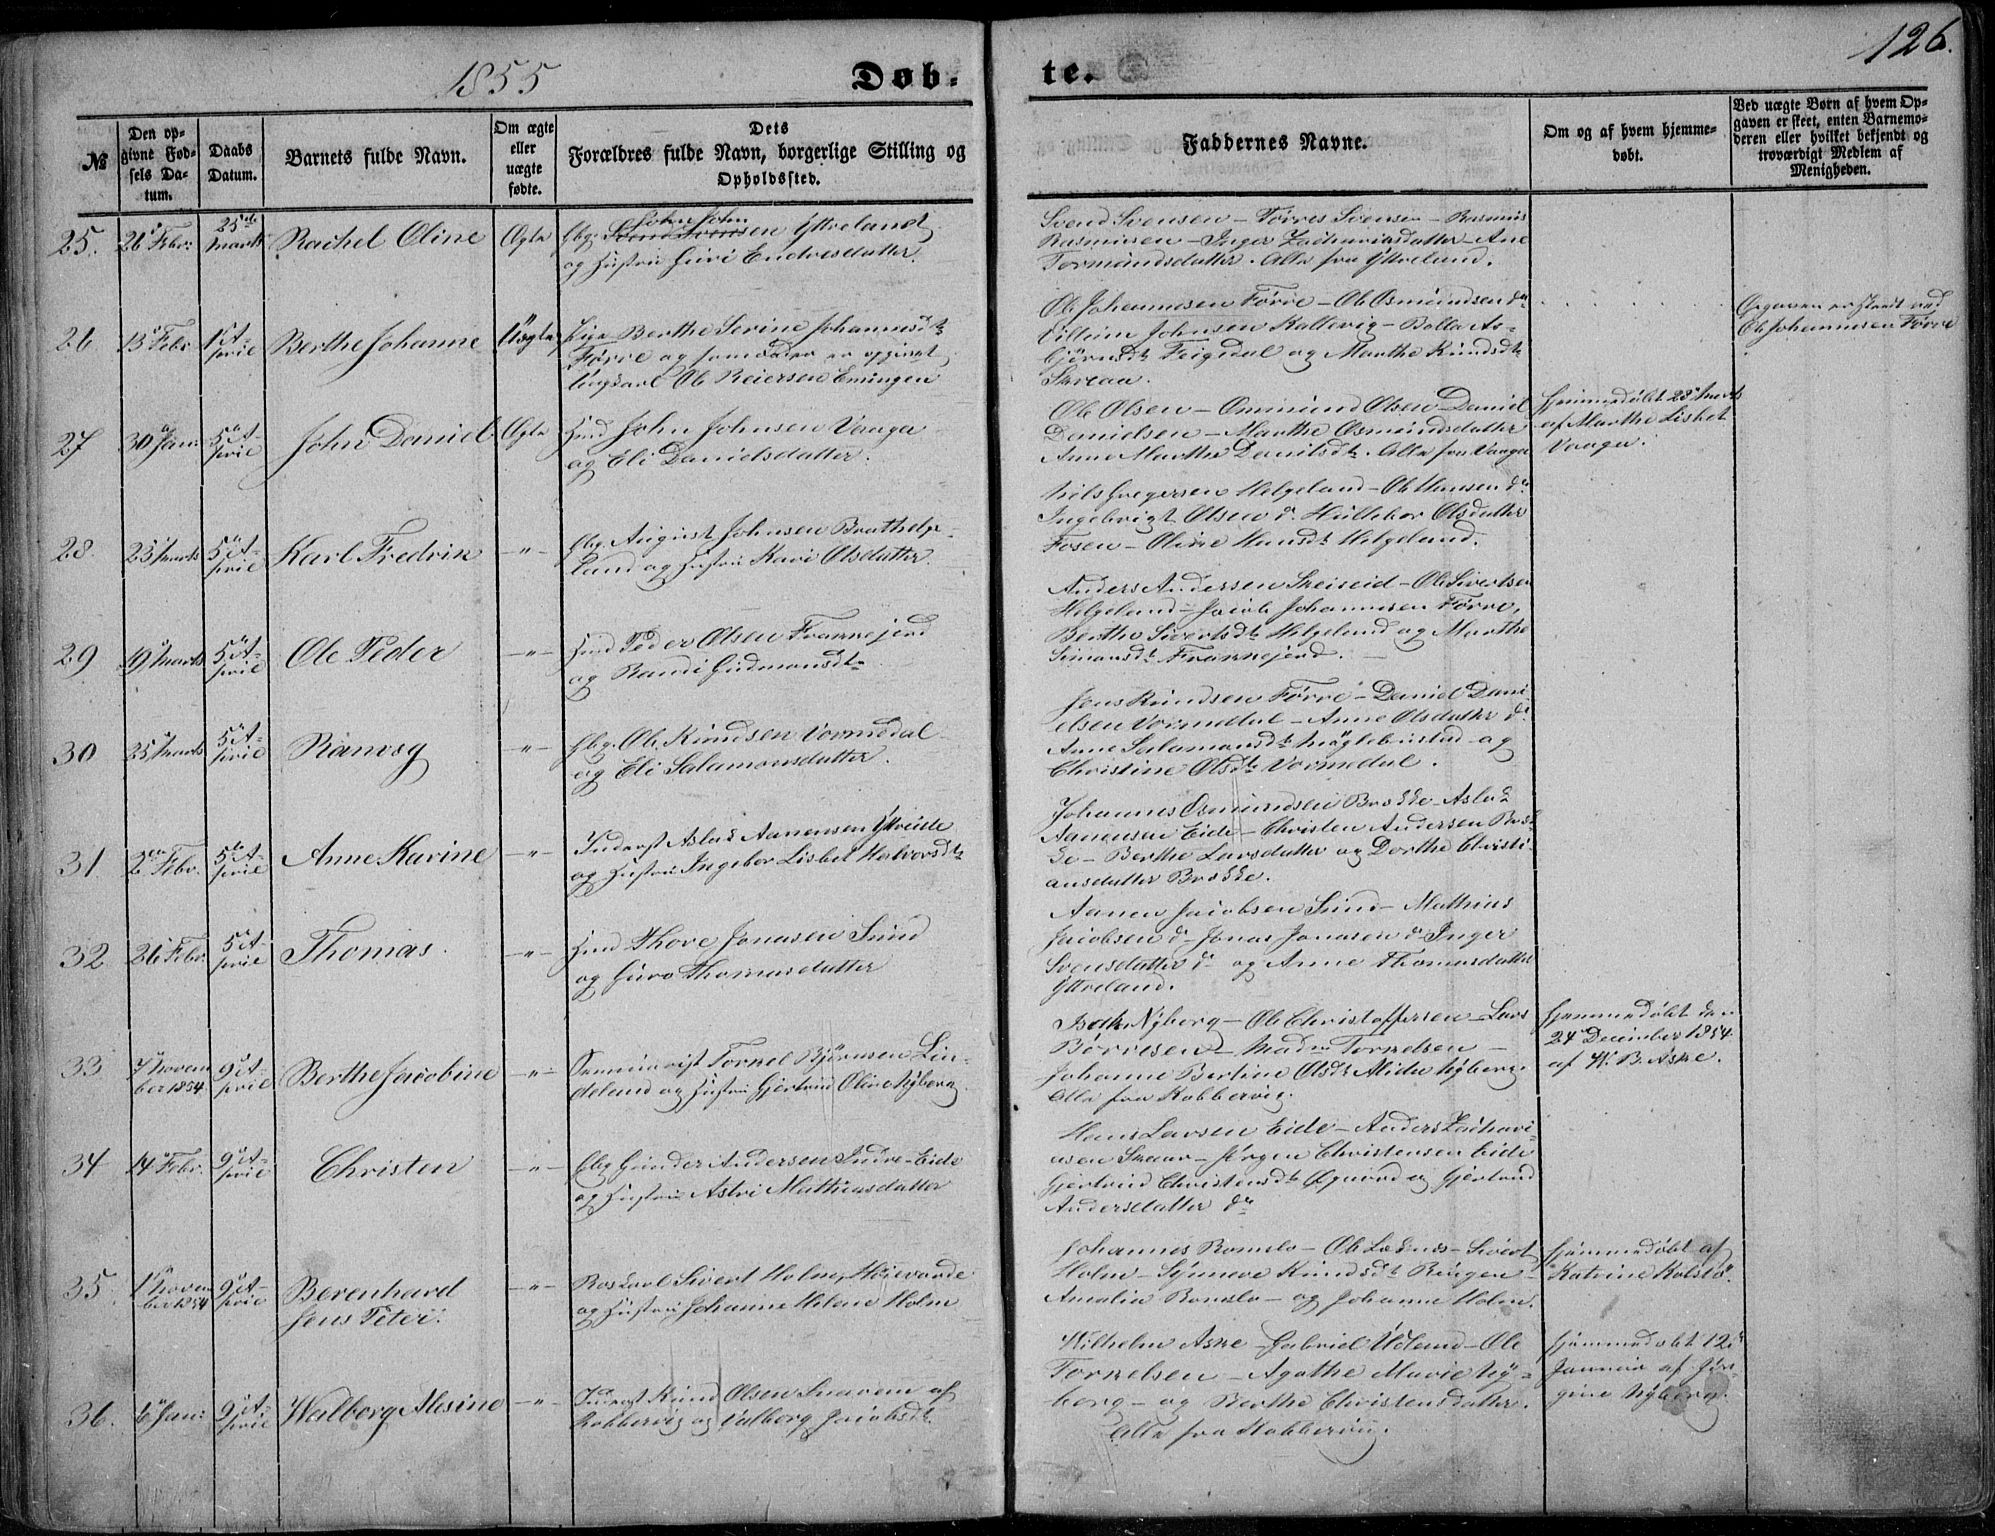 1855
Døb-
te.
126.
№
Den op-
givne Fød-
sels Da-
tum.
Daabs
Datum.
Barnets fulde Navn.
Om ægte
eller
uægte
fødte.
Dets
Forældres fulde Navn, borgerlige Stilling og
Opholdssted.
Faddernes Navne.
Om og af hvem hjemme-
døbt.
Ved uægte Børn af hvem Op-
gaven er skeet, enten Barnemo-
deren eller hvilket bekjendt og
troværdigt Medlem af
Menigheden.
25.
26 Febr:
25de
Marts
Rachel Oline
Ægte
John John
Gbr. Svend Svensen Yttreland
og Hustru Guri Endresdatter.
Svend Svensen - Torres Svensen - Rasmus
Rasmusen - Inger Zachariasdatter - Ane
Tormundsdatter. Alle fra Yttreland.
26
13 Febr
1 A-
pril
Berthe Johanne
Uægte
Pige Berthe Serine Johannesdt
Førre og som Fader er opgivet
Ungkarl Ole Reiersen Eningen
Ole Johannesen Førre - Ole Osmundsen do
Villum Johnsen Kallevig - Bolla As-
bjørnsdt Feigedal og Marthe Knudsdt
Skeaa.
Opgaven er skeet ved
Ole Johannesen Førre
27
30 Jan:
5 A-
pril
John Daniel
Ægte
Hmd John Johnsen Vaaga
og Eli Danielsdatter.
Ole Olsen - Ommund Olsen - Daniel
Danielsen - Marthe Osmundsdatter
Anne Marthe Danielsdt. Alle fra Vaaga
Hjemmedøbt 28 Marts
af Marthe Lisbet
Vaaga.
28
23 Marts
5 A-
pril
Karl Fredrik
-"-
Gbr. August Johnsen Brathelge-
land og Hustru Kari Olsdatter.
Nils Gregersen Helgeland - Ole Hansen do
Ingebrigt Olsen do Hullebor Olsdatter
Fosen - Oline Hansdt Helgeland.
29
19 Marts
5 A-
pril
Ole Peder
-"-
Hmd Peder Olsen Frannejerd
og Randi Gudmansdt
Anders Andersen Skeiseid - Ole Sivertsen
Helgeland - Jacob Johannesen Førre,
Berthe Sivertsdt Helgeland og Marthe
Simonsdt Frannejerd.
30
25 Marts
5 A-
pril
Ranveg
-"-
Gbr. Ole Knudsen Vormedal
og Eli Salamonsdatter.
Jens Knudsen Førre - Daniel Dani-
elsen Vormedal - Anne Olsdatter do
Anne Salamonsdt Møglebustad og
Christine Olsdt Vormedal.
31
2 Febr.
5 A-
pril
Anne Karine
-"-
Inderst Aslak Aanensen Ytreeide
og Hustru Ingebor Lisbet Halvorsdt
Johannes Osmundsen Brekke - Aslak
Aanensen Eide - Christen Andersen Brek-
ke - Berthe Larsdatter og Dorthe Christi-
ansdatter Brekke.
32
26 Febr.
5 A-
pril
Thomas
-"-
Hmd Thore Jonasen Sund
og Guro Thomasdatter
Aanen Jacobsen Sund - Mathias
Jacobsen do - Jonas Jonasen do - Inger
Svensdatter do og Anne Thomasdatter
Yttreland.
33
7 Novem
ber 1854
9 A-
pril
Berthe Jacobine
-"-
Seminarist Tornel Bjørnsen Lin-
deland og Hustru Gjertrud Oline Nyberg
Nyborg - Ole Christoffersen - Lars
Børresen - Mad Tornelsen -
Johanne Bertine Olsdt Alida Nyberg.
Alle fra Kobbervig.
Hjemmedøbt den
24 December 1854
af W. B. Aske.
34
14 Febr.
9 A-
pril
Christen
-"-
Gbr Gunder Andersen Indre-Eide
og Hustru Astri Mathiasdatter
Hans Larsen Eide - Anders Zachari-
asen Skeaar - Jørgen Christensen Eide
Gjertrud Christensdt Øquord og Gjertrud
Andersdatter do
35.
1 Novem
ber 1854
9 A-
pril
Berenhard
Jens Peter.
-"-
Sivert Holm, Høievarde
og Hustru Johanne Helene Holm
Johannes Romslo - Ole Løknes - Sivert
Holm - Synneve Knudsdt Ringen -
Amalia Romslo - og Johanne Holm.
Hjemmedøbt af
Katrine Kolstø.
36.
6 Jan:
9 A-
pril
Walborg Alesine
-"-
Inderst Knud Olsen Snavem af
Kobbervig og Valborg Jacobsdt.
Wilhelm Aske - Gabriel Udland - Ole
Tornelsen - Agathe Marie Ny-
berg - og Berthe Christensdatter.
Alle fra Kobbervig.
Hjemmedøbt 12
Januar af Jør-
gine Nyberg.